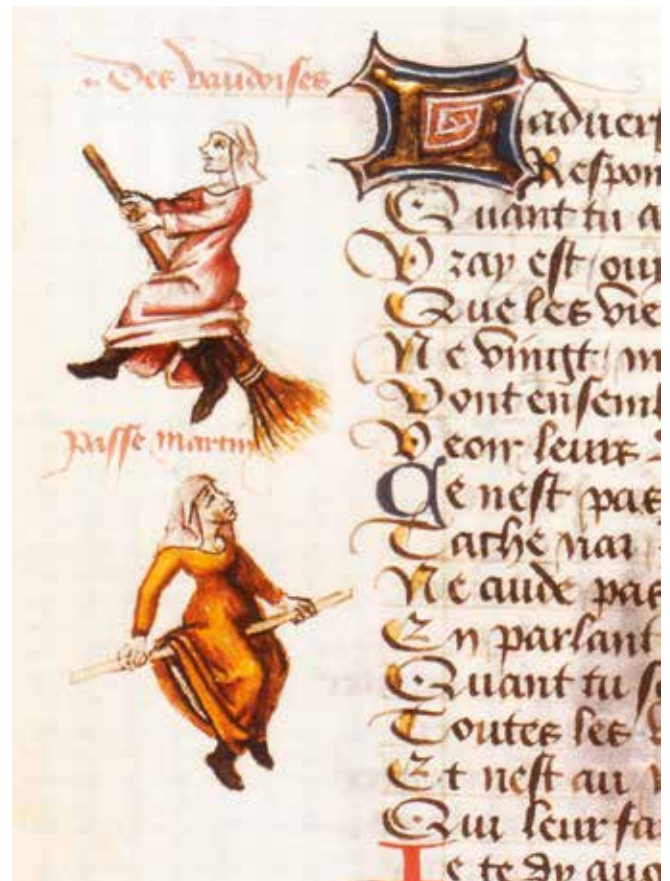 Des vaudoises
passe martin
Laduers
Respon
Quant tu a
Vray est ouy
Que les vie
Ne vingt m
Vont ensembl
Veoir leurs
Ce nest pas
Tache
Ne cuide pas
En parlant
Quant tu
Toutes les
Et nest au
Qui leur fa
Je te dy